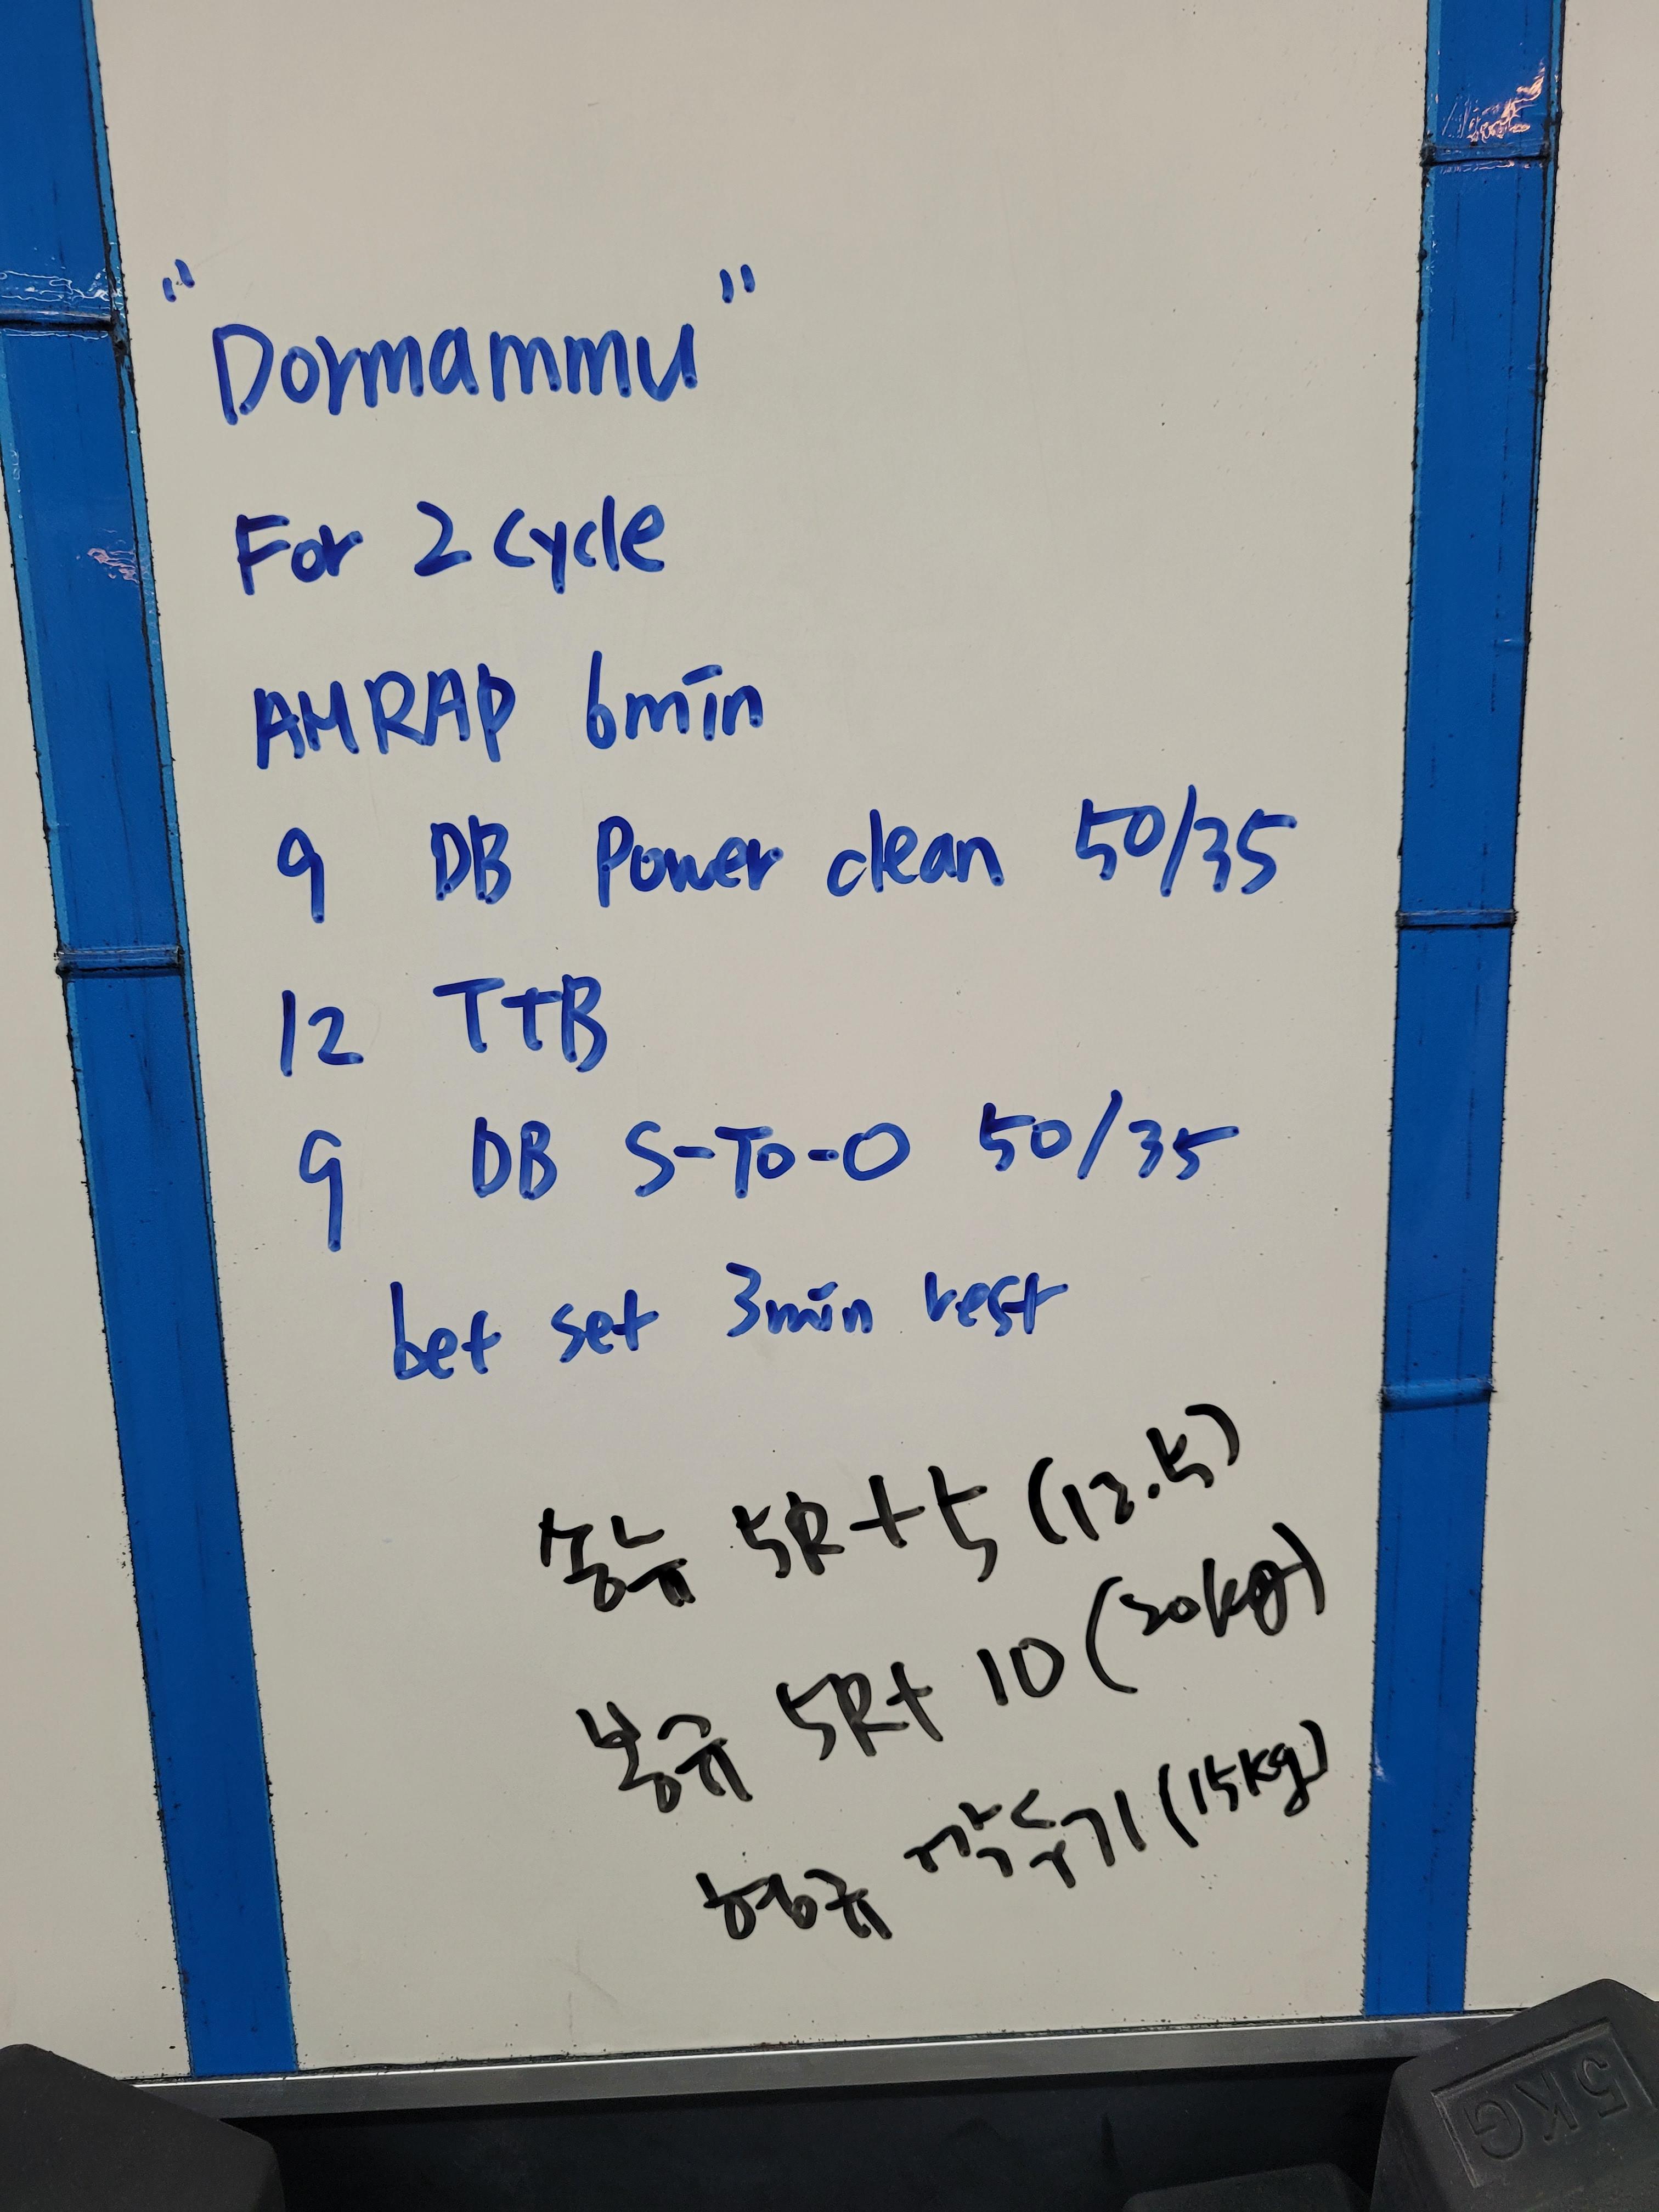 "Dormammu"
For 2 cycle
AMRAP 6min
9 DB Power clean 50/35
12 TTB
9 DB S-To-O 50/35
bet set 3min rest
5R+5 (12.5)
5R+ 10 (20kg)
(15kg)
5KG